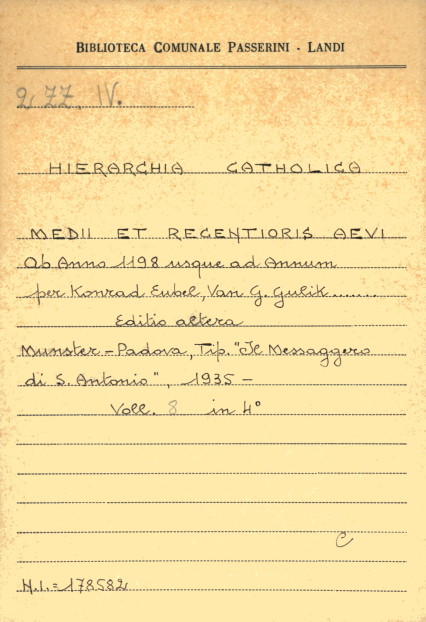 BIBLIOTECA COMUNALE PASSERINI - LANDI
2 ZZ. IV.
HIERARCHIA CATHOLICA
MEDII ET RECENTIORIS AEVI
Ab Anno 1198 usque ad Annum
per Konrad Eubel, Van G. Gulik........
Editio altera
Munster - Padova, Tip. "Il Messaggero
di S. Antonio", 1935 -
Voll. 8 in 4°
C
N.I. = 178582